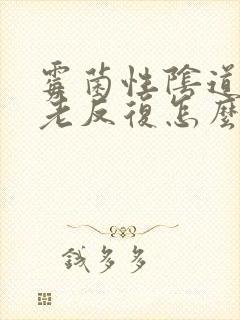 霉菌性陰道
老反復怎麼
錢多多